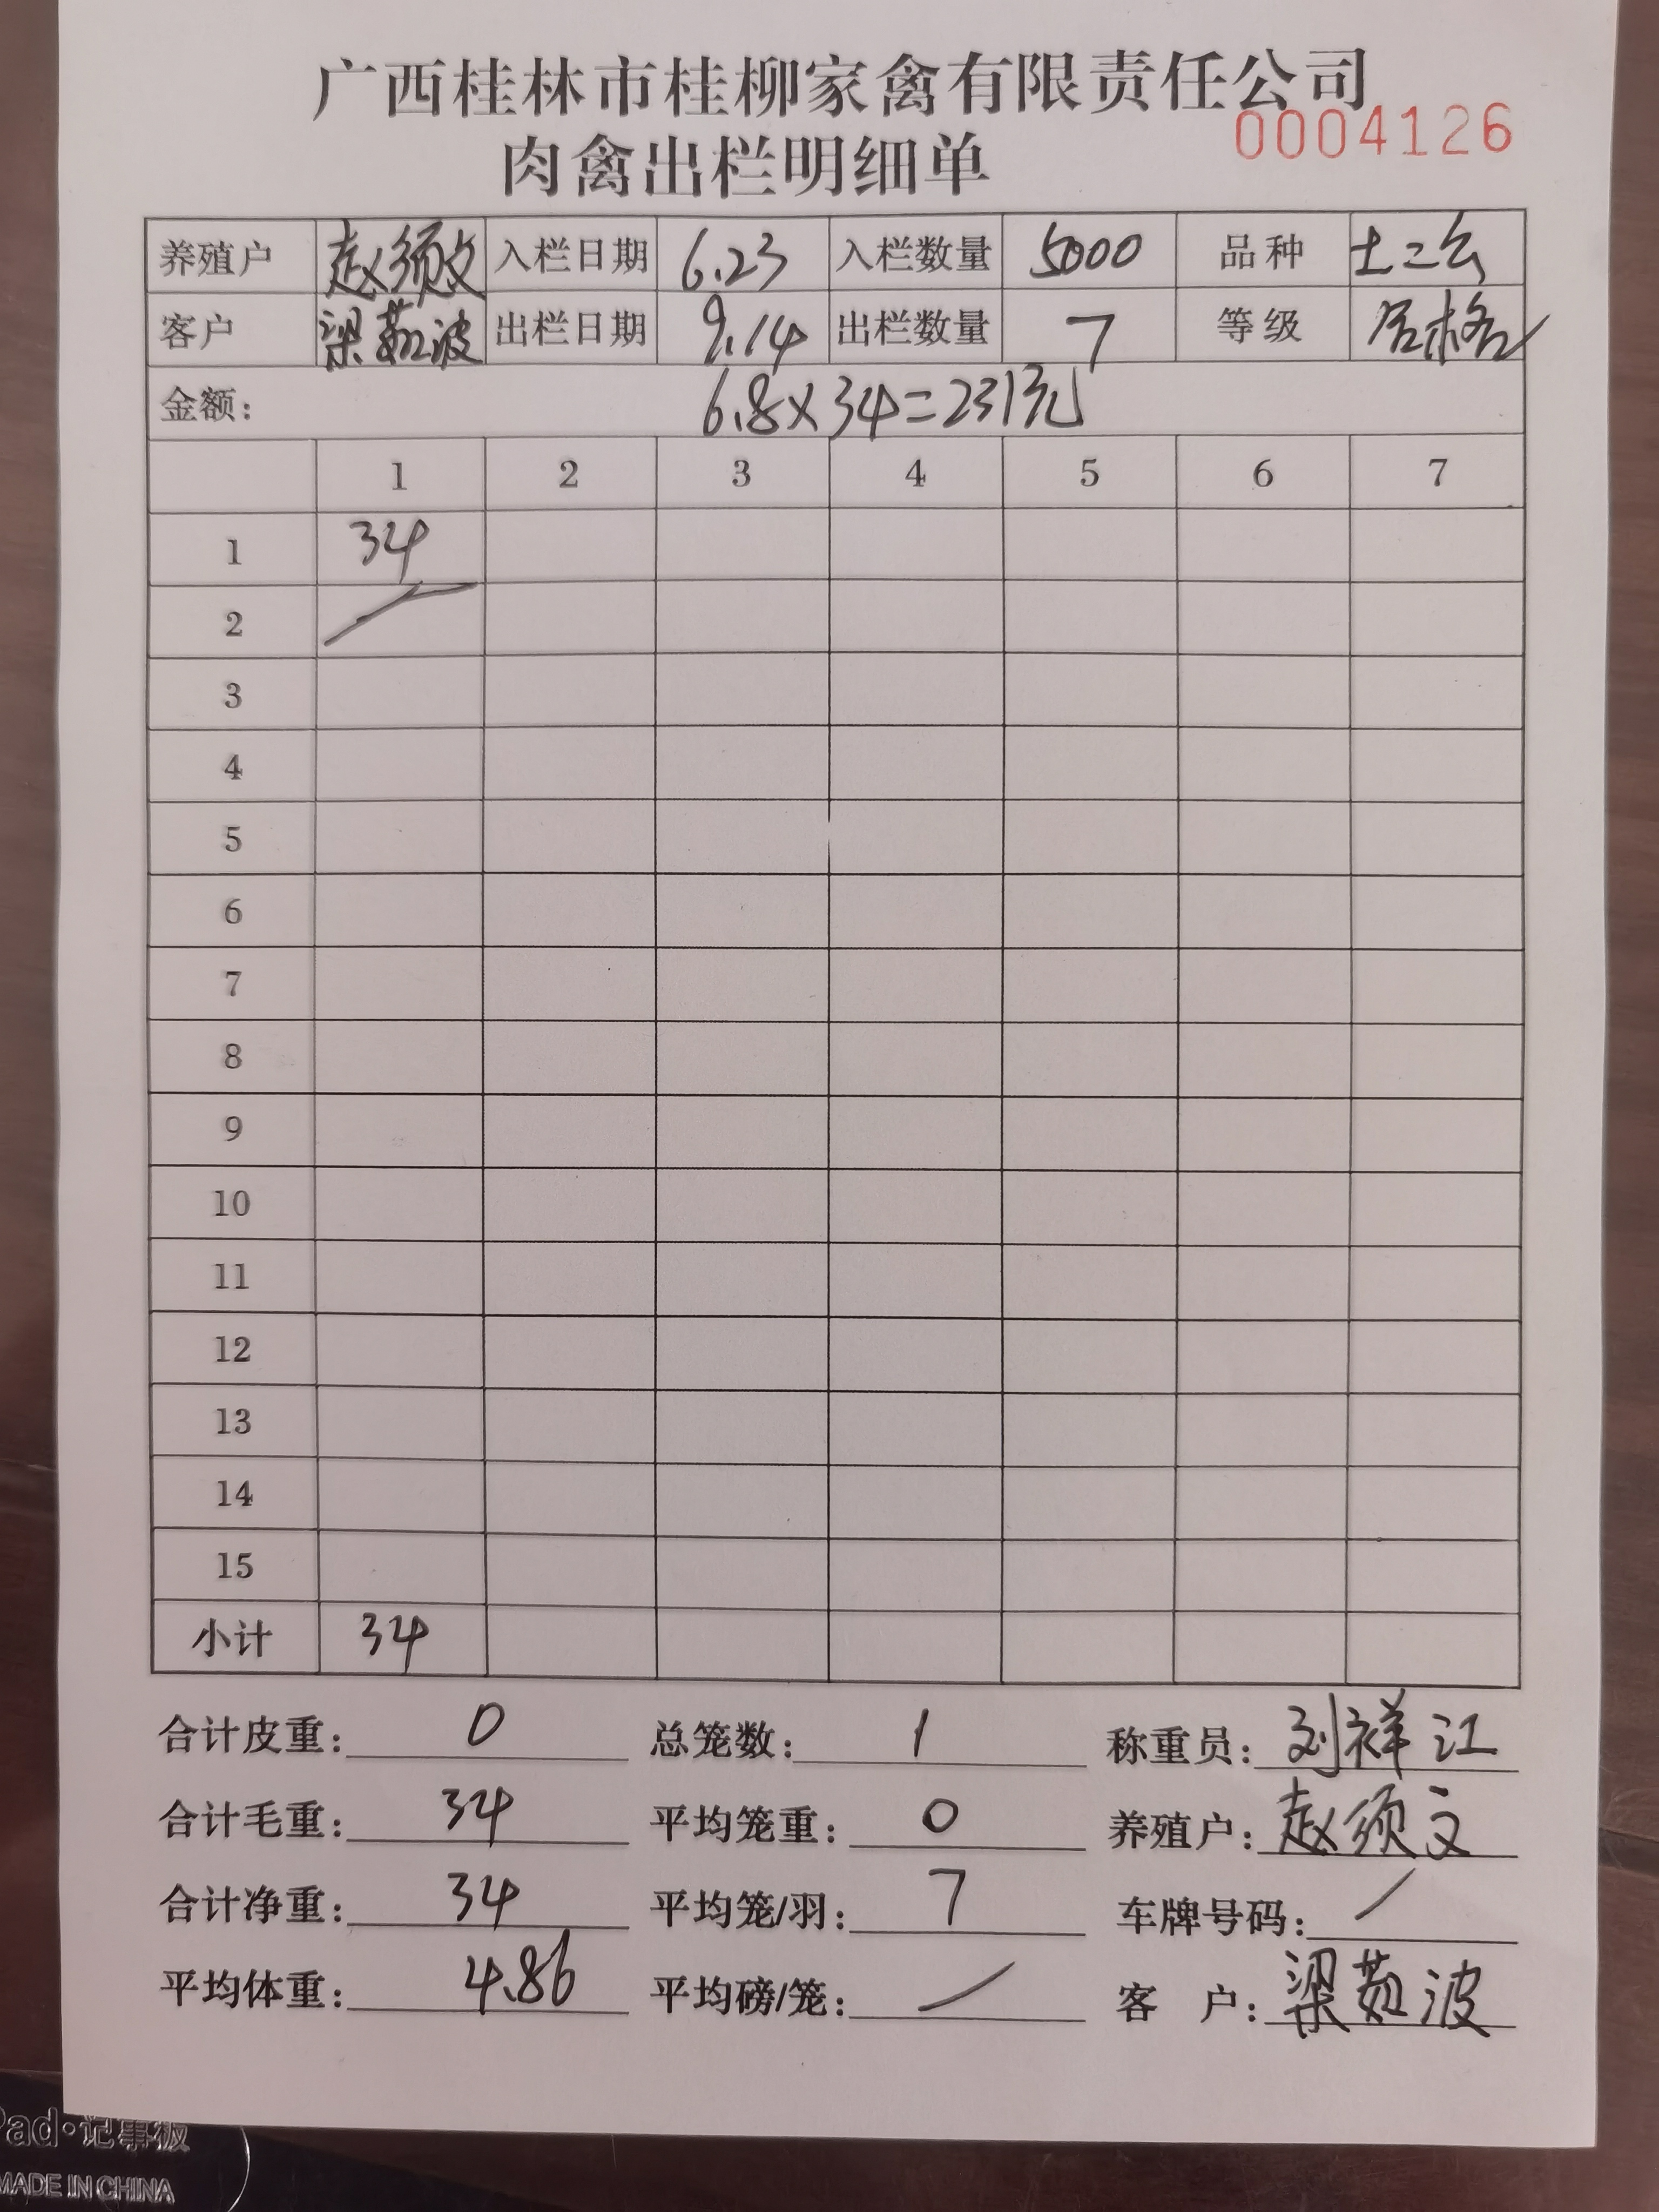 广西桂林市桂柳家禽有限责任公司
0004126
肉禽出栏明细单
养殖户 赵须文 入栏日期 6.23 入栏数量 5000 品种 土二公
客户 梁茹波 出栏日期 9.14 出栏数量 7 等级 合格
金额: 6.8×34=231元
1 2 3 4 5 6 7
1 34
2
3
4
5
6
7
8
9
10
11
12
13
14
15
小计 34
合计皮重: 0 总笼数: 1 称重员: 刘祥江
合计毛重: 34 平均笼重: 0 养殖户: 赵须文
合计净重: 34 平均笼/羽: 7 车牌号码: /
平均体重: 4.86 平均磅/笼: / 客 户: 梁茹波
Pad·记事板
MADE IN CHINA